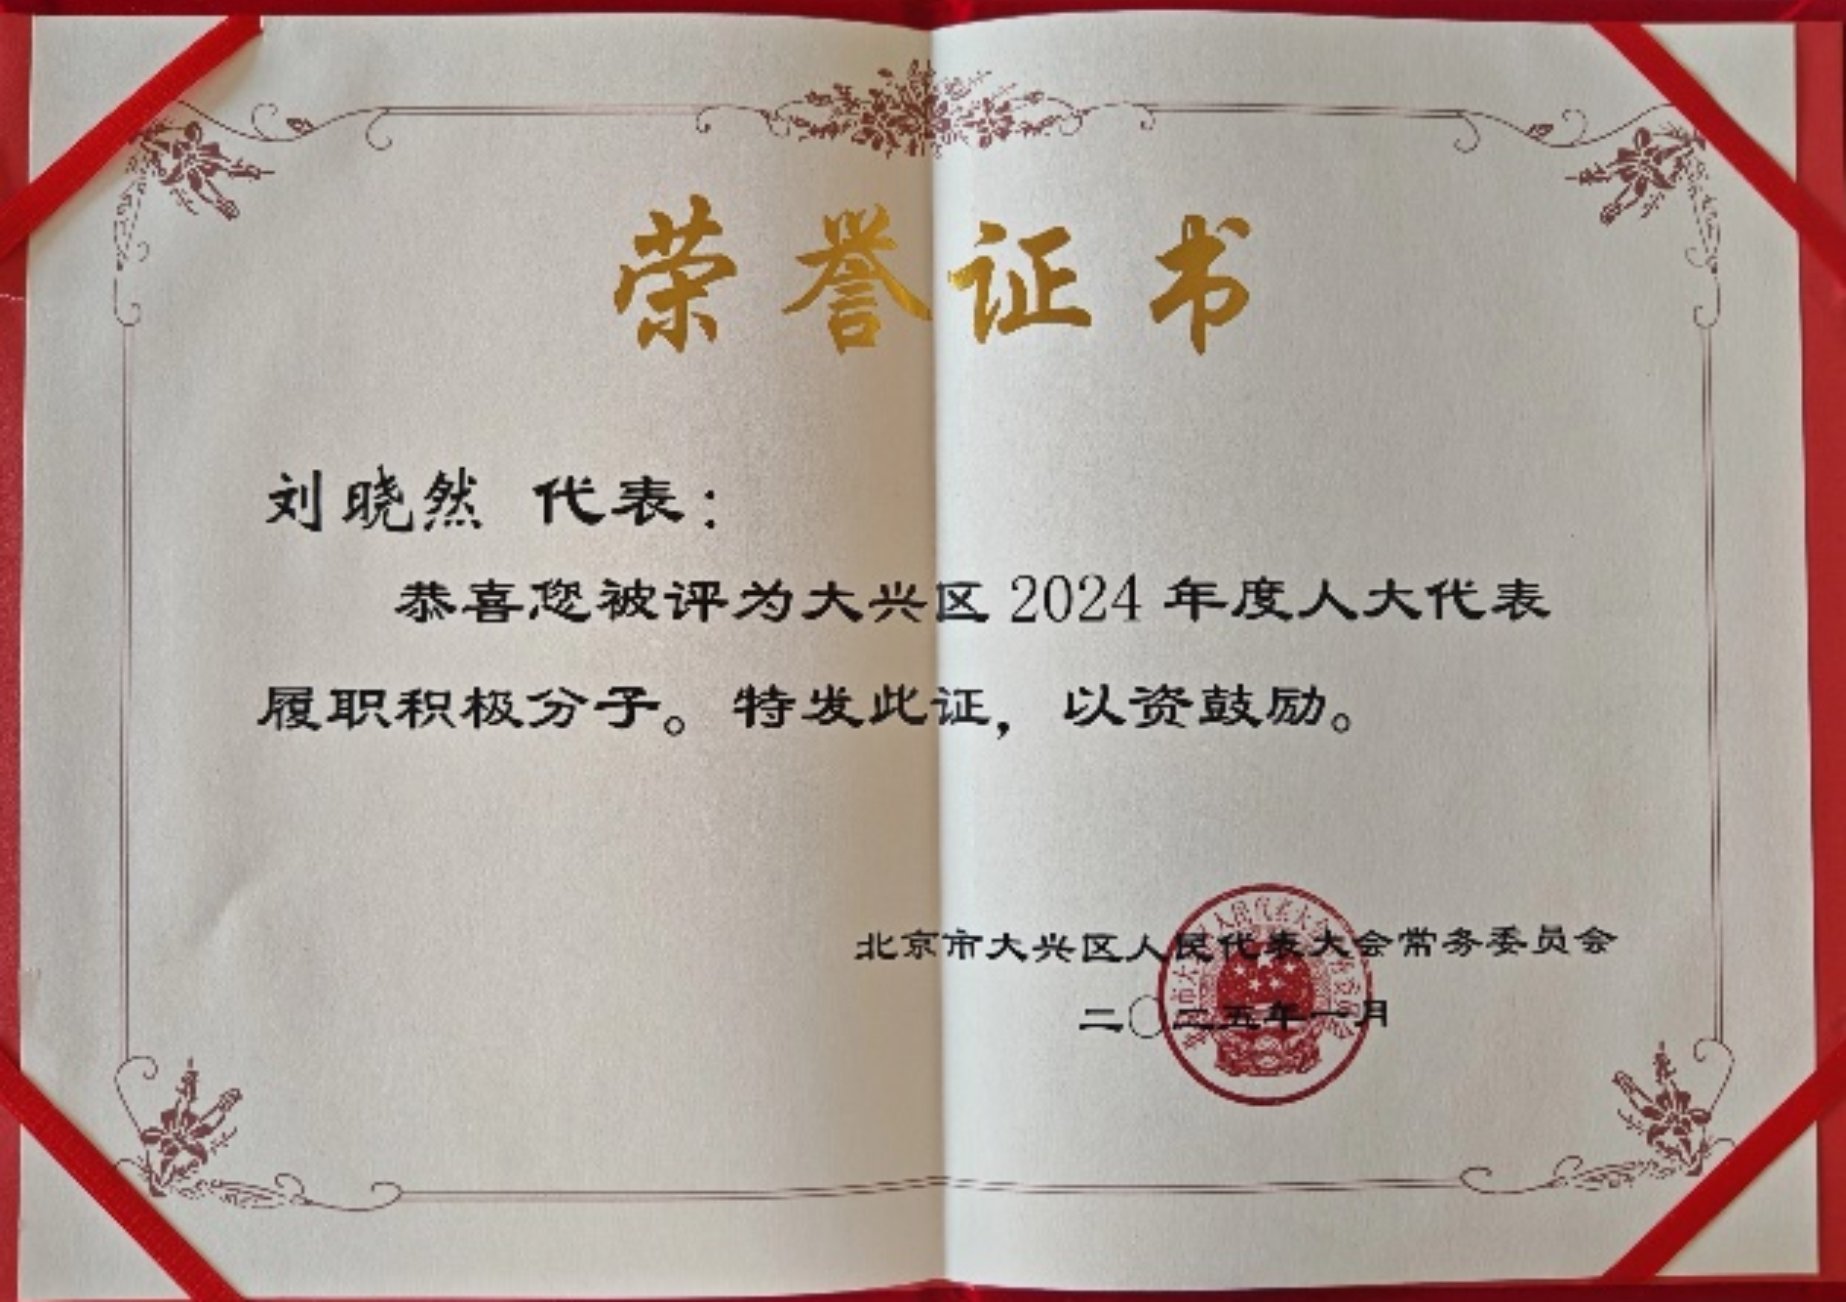 荣誉证书
刘晓然 代表：
恭喜您被评为大兴区2024年度人大代表
履职积极分子。特发此证，以资鼓励。
北京市大兴区人民代表大会常务委员会
二〇二五年一月